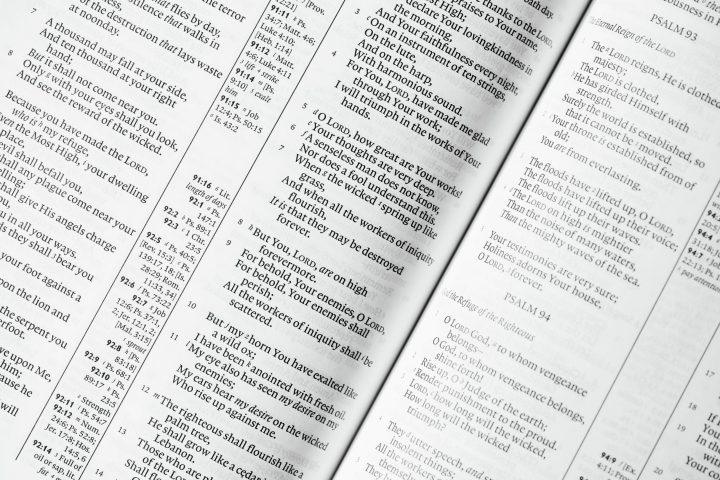 flies by day,
at noonday.
of the destruction that lays waste
A thousand may fall at your side,
And ten thousand at your right
But it shall not come near you.
with your eyes shall you look,
And see the reward of the wicked.
Because you have made the LORD,
Who is my refuge,
the Most High, your dwelling
place,
evil shall befall you,
shall any plague come near your
shall give His angels charge
in all your ways.
they shall bear you
your foot against a
upon the lion and
the serpent you
91:11
91:12
91:14
91:15
91:16 Lit.
length of days
92:1 Ps.
147:1
92:2 Ps. 89:1
92:3 1 Chr.
23:5
92:5 Ps. 40:5;
[Rev. 15:3] Ps.
139:17, 18; [Is.
28:29; Rom.
11:33, 34]
92:6 Ps. 73:22
92:7 Job
12:6; Ps. 37:1,
2; Jer. 12:1, 2;
[Mal. 3:15]
sprout
92:8 [Ps.
83:18]
92:9 Ps. 68:1
92:10 Ps.
89:17 Ps.
23:5
Strength
92:11 Ps. 54:7
92:12 Num.
24:6; Ps. 52:8;
Jer. 17:8; Hos.
14:5, 6
92:14 Full of
oil or sap, lit.
thanks to the LORD,
praises to Your name,
Most High;
declare Your lovingkindness in
the morning,
And Your faithfulness every night,
3 On an instrument of ten strings,
On the lute,
And on the harp,
With harmonious sound.
4 For You, LORD, have made me glad
through Your work;
I will triumph in the works of Your
hands.
5 O LORD, how great are Your works!
Your thoughts are very deep.
6 A senseless man does not know,
Nor does a fool understand this.
7 When the wicked spring up like
grass,
And when all the workers of iniquity
flourish,
It is that they may be destroyed
forever.
8 But You, LORD, are on high
forevermore.
9 For behold, Your enemies, O LORD,
For behold, Your enemies shall
perish;
All the workers of iniquity shall be
scattered.
10 But my horn You have exalted like
a wild ox;
I have been anointed with fresh oil.
11 My eye also has seen my desire on my
enemies;
My ears hear my desire on the wicked
Who rise up against me.
12 The righteous shall flourish like a
palm tree,
He shall grow like a cedar in
Lebanon.
13 Those who are
of the LORD
Shall
PSALM 93
The Eternal Reign of the LORD
1 The LORD reigns, He is clothed
majesty;
The LORD is clothed,
He has girded Himself with
strength.
Surely the world is established, so
that it cannot be moved.
2 Your throne is established from of
old;
You are from everlasting.
3 The floods have lifted up, O LORD,
The floods have lifted up their voice;
The floods lift up their waves.
4 The LORD on high is mightier
Than the noise of many waters,
Than the mighty waves of the sea.
5 Your testimonies are very sure;
Holiness adorns Your house,
O LORD, forever.
PSALM 94
the Refuge of the Righteous
1 O LORD God, to whom vengeance
belongs—
O God, to whom vengeance belongs,
shine forth!
2 Rise up, O Judge of the earth;
Render punishment to the proud.
3 LORD, how long will the wicked,
How long will the wicked
triumph?
4 They utter speech, and
insolent things;
All the workers of
themselves
They
94:9 [Ex.
4:11; Prov.
17
18 If
19 In the
20